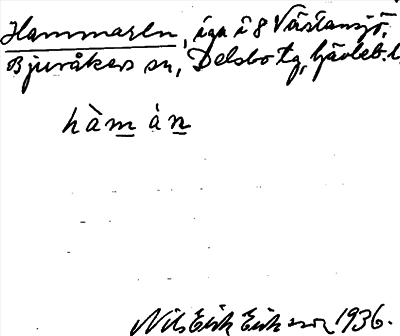 Hammaren, äga i 8 Västansjö,
Bjuråkers sn, Delsbo tg, Gävleb. l.
hàm àn
Nils Erik Eriksson 1936.